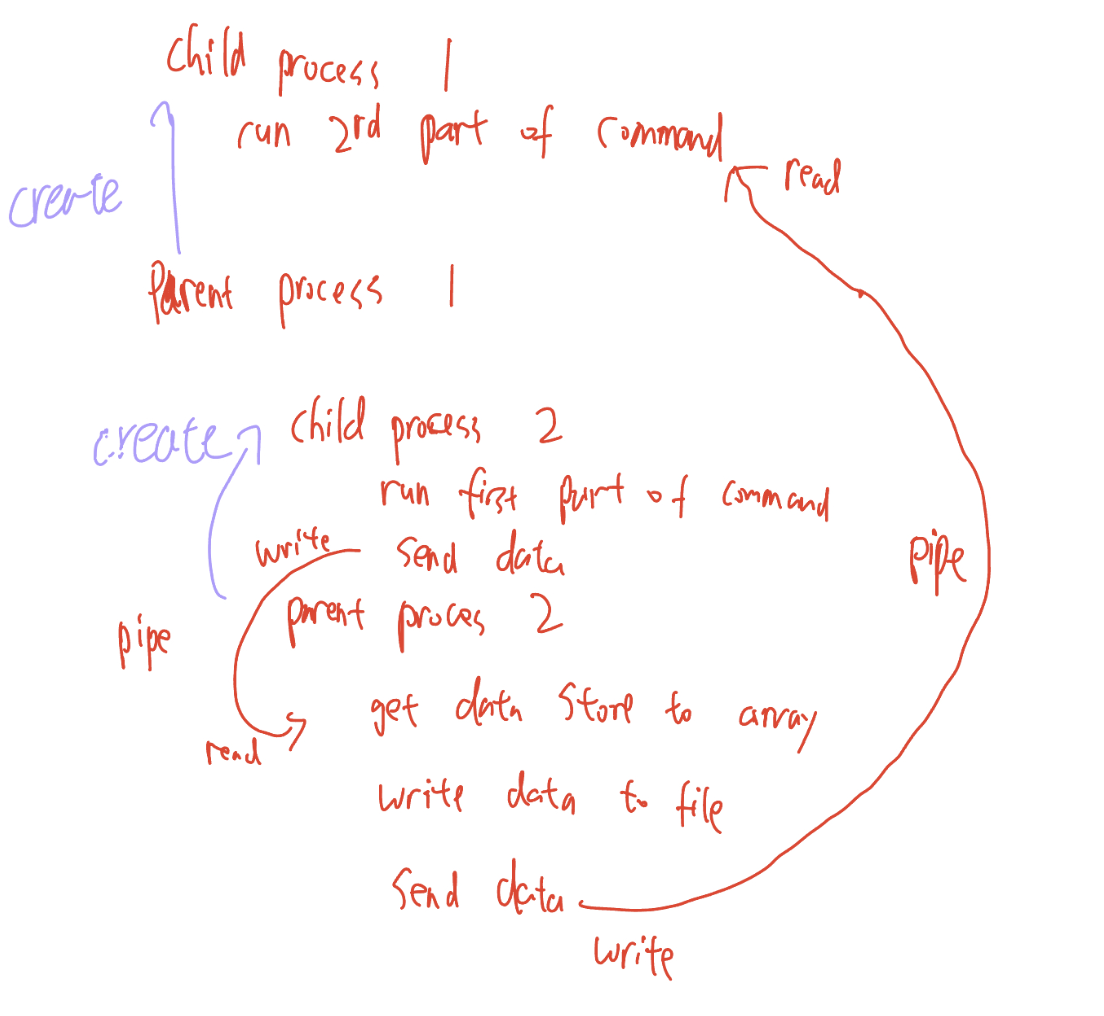 child process 1
run 2nd part of command
read
create
Parent process 1
create
child process 2
run first part of command
write
send data
pipe
parent proces 2
pipe
get data store to array
read
write data to file
send data
write